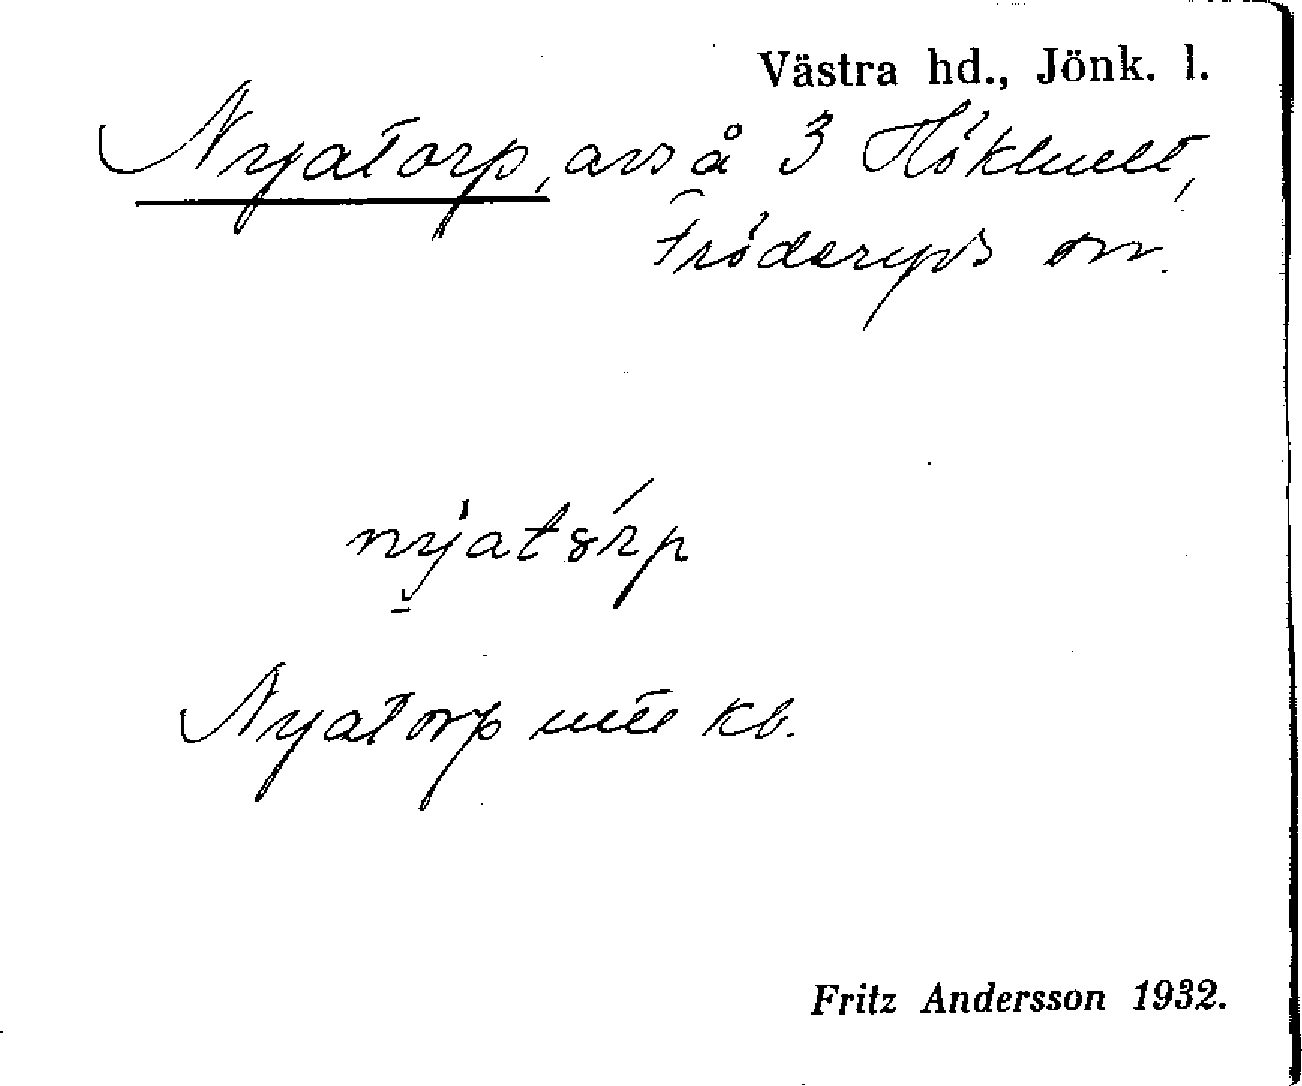 Västra hd., Jönk. l.
Nyatorp, avs å 3 Hökhult,
Fröderyds sn.
nyatórp
Nyatorp uttr kb.
Fritz Andersson 1932.